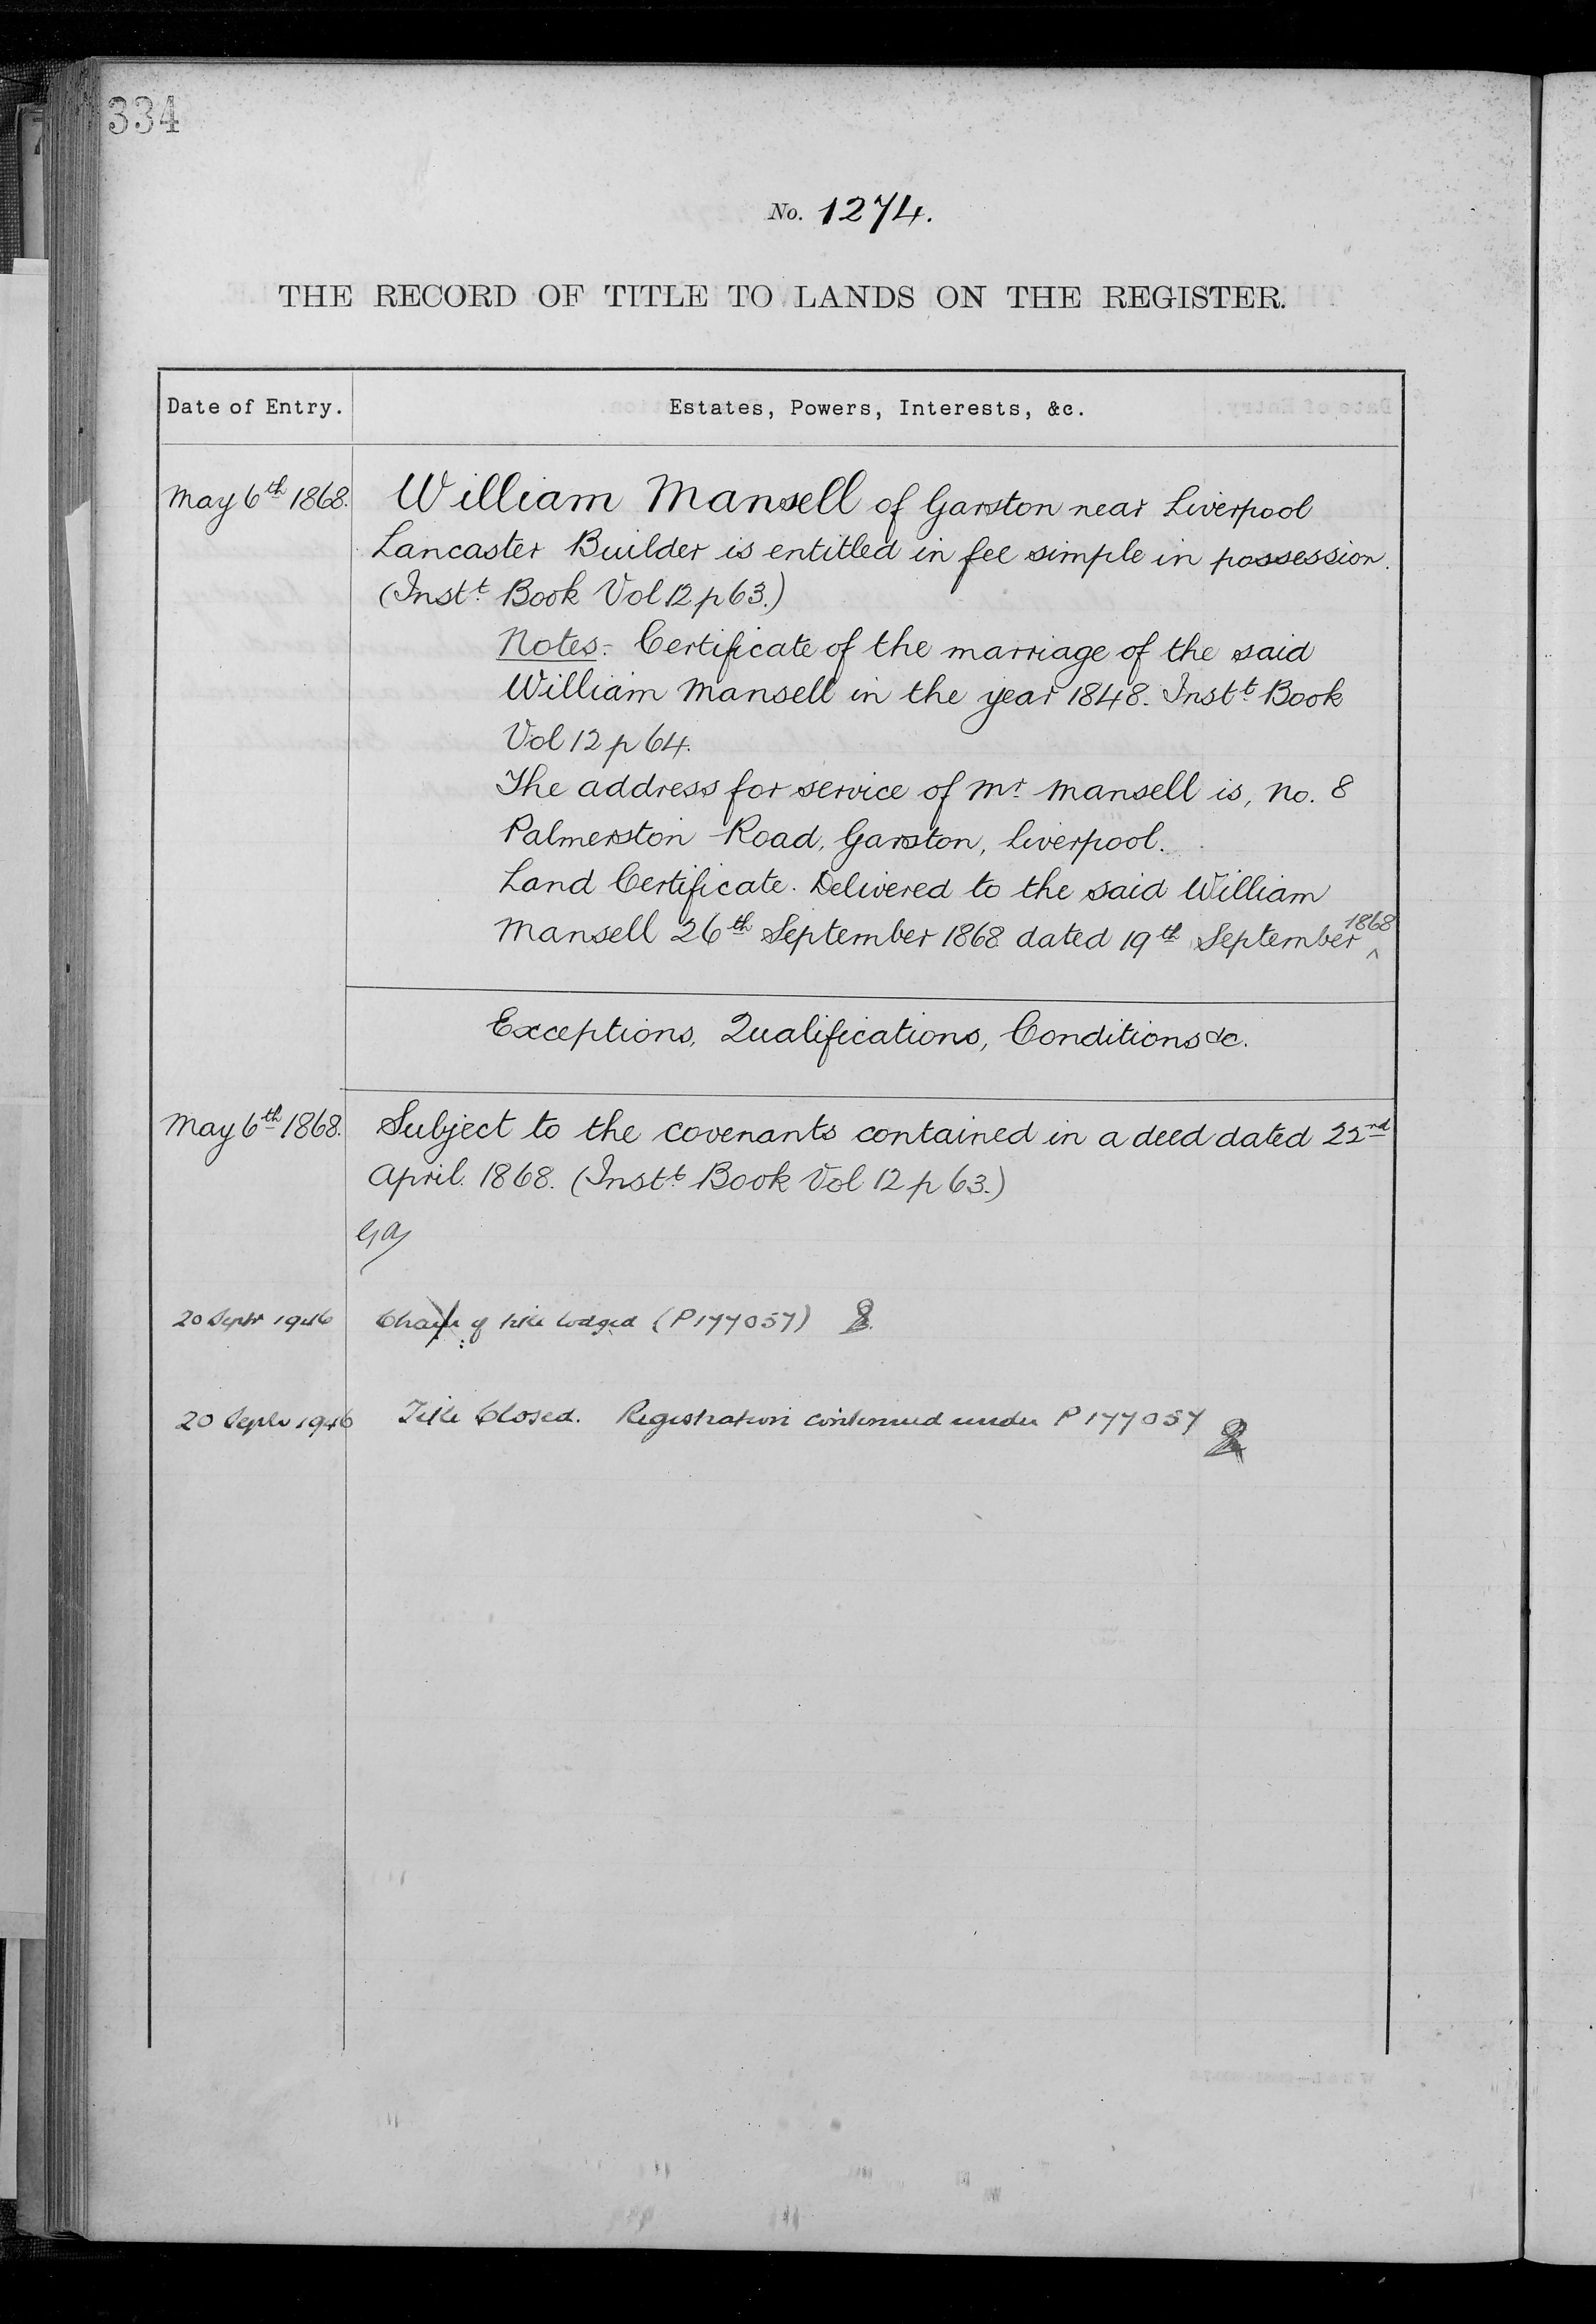 334
No. 1274.
THE RECORD OF TITLE TO LANDS ON THE REGISTER.
Date of Entry. Estates, Powers, Interests, &c.
May 6th 1868. William Mansell of Garston near Liverpool
Lancaster Builder is entitled in fee simple in possession.
(Instt. Book Vol 12 p 63.)
Notes:- Certificate of the marriage of the said
William Mansell in the year 1848. Instt. Book
Vol 12 p 64.
The address for service of Mr. Mansell is, No. 8
Palmerston Road, Garston, Liverpool.
Land Certificate. Delivered to the said William
Mansell 26th September 1868 dated 19th September ^1868
Exceptions, Qualifications, Conditions &c.
May 6th 1868. Subject to the covenants contained in a deed dated 22nd
April. 1868. (Instt. Book Vol 12 p 63.)
20 Septr 1946 of title lodged (P177057)
20 Septr 1946 Title Closed. Registration continued under P177057